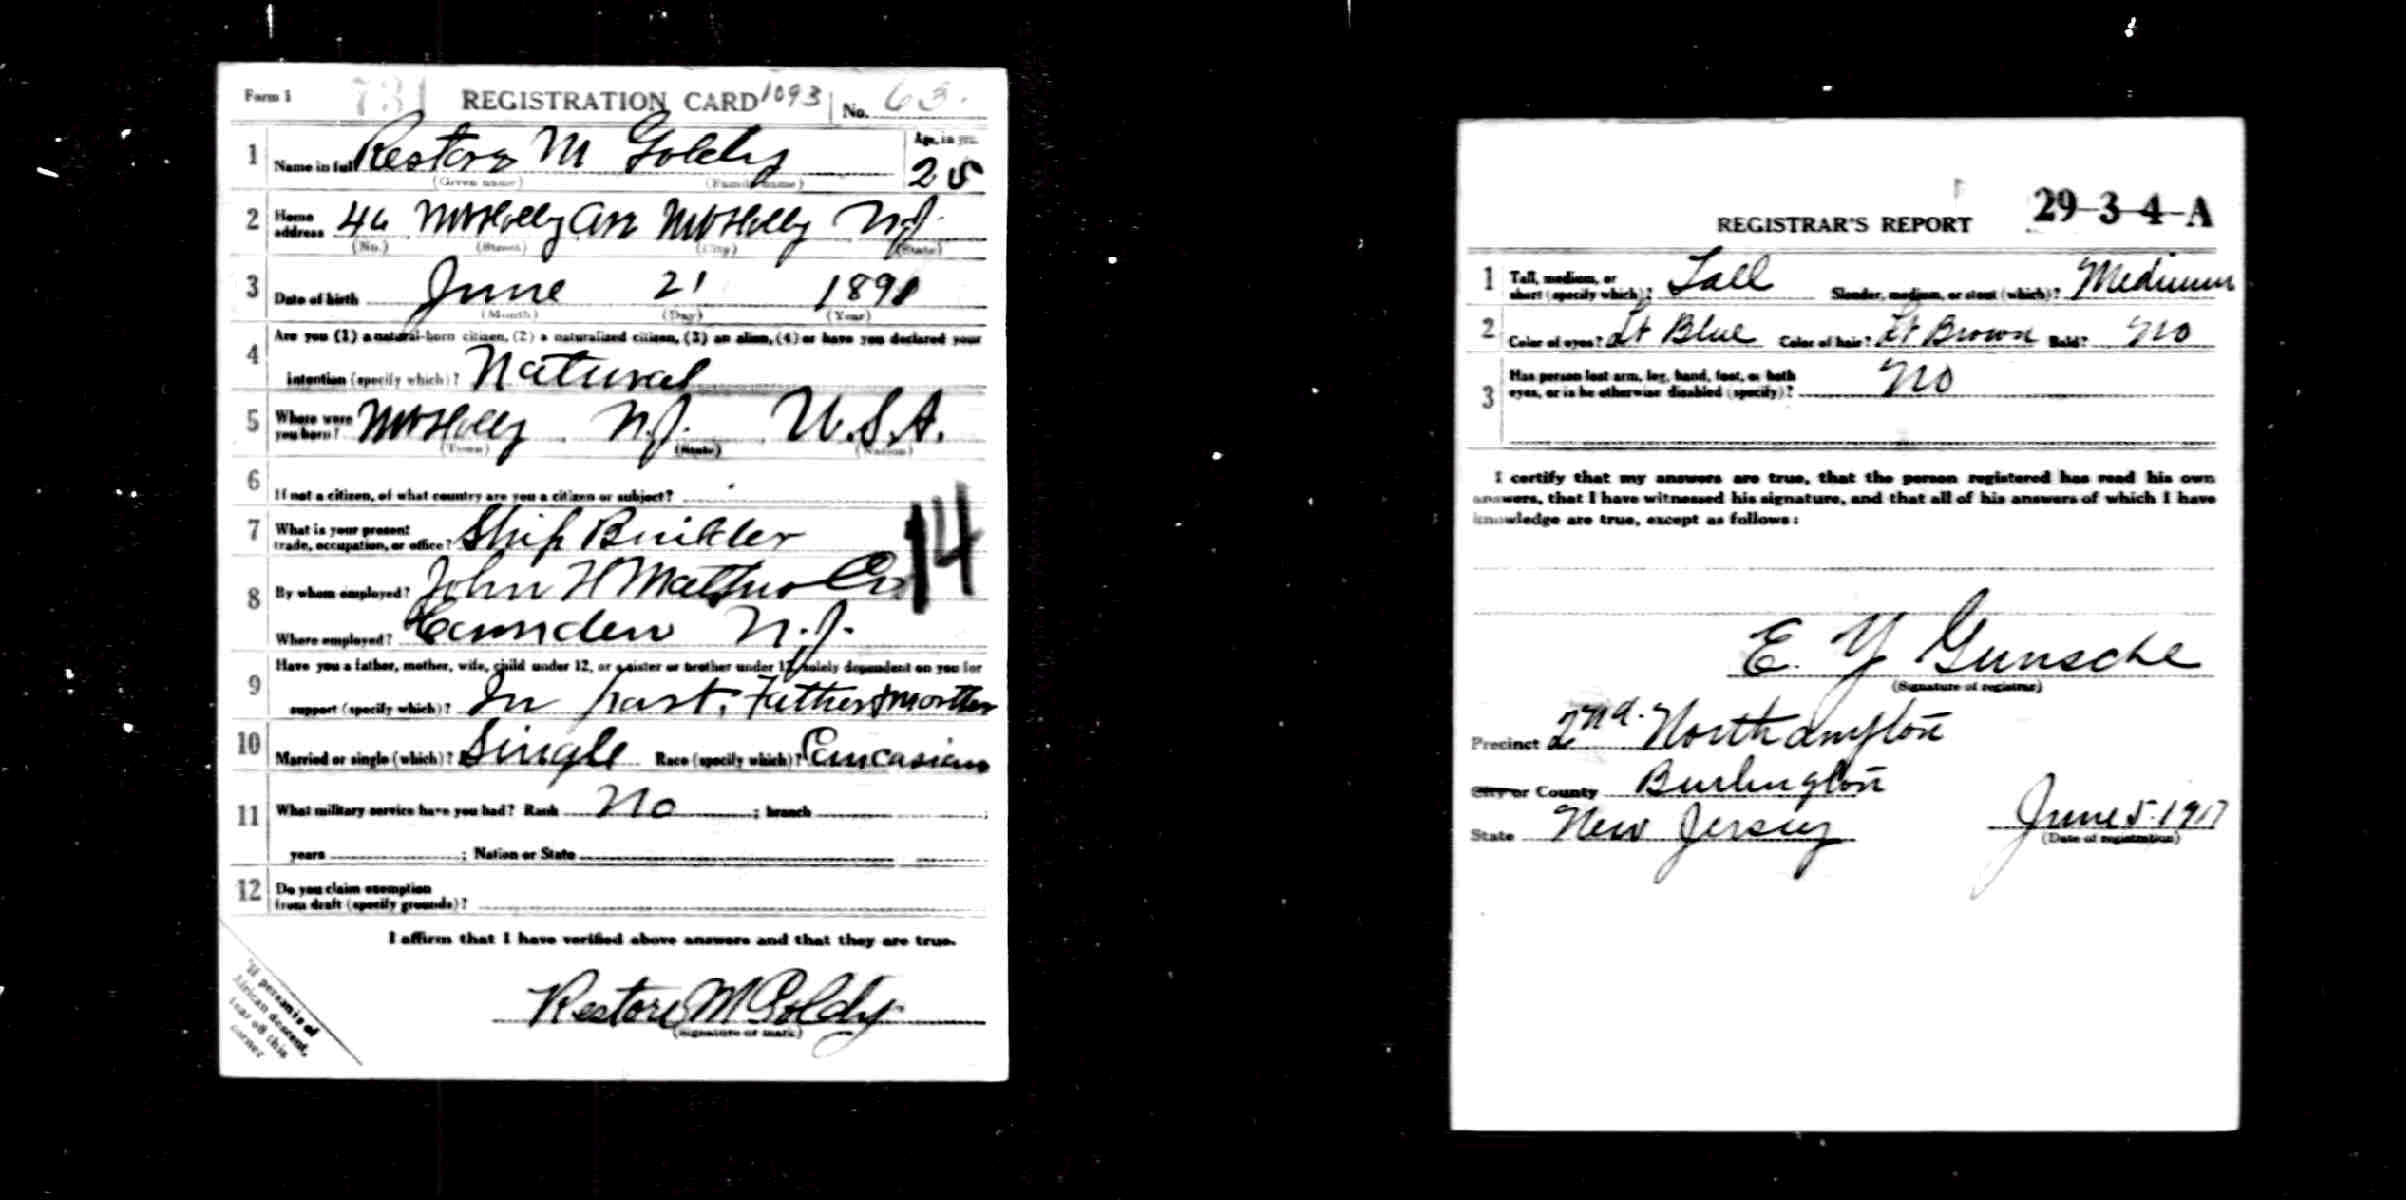 Form 1 731 REGISTRATION CARD 1093 No. 63.
1 Name in full Restore M Goldy Age, in yrs. 25
(Given name) (Family name)
2 Home address 46 Mt Holly Ave Mt Holly N.J.
(No.) (Street) (City) (State)
3 Date of birth June 21 1891
(Month) (Day) (Year)
4 Are you (1) a natural-born citizen, (2) a naturalized citizen, (3) an alien, (4) or have you declared your
intention (specify which)? Natural
5 Where were you born? Mt Holly N.J. U.S.A.
(Town) (State) (Nation)
6 If not a citizen, of what country are you a citizen or subject?
7 What is your present trade, occupation, or office? Ship Builder
14
8 By whom employed? John H Mathis Co.
Where employed? Camden N.J.
9 Have you a father, mother, wife, child under 12, or a sister or brother under 12, solely dependent on you for
support (specify which)? In part. Father & Mother
10 Married or single (which)? Single Race (specify which)? Caucasian
11 What military service have you had? Rank No ; branch ;
years ; Nation or State
12 Do you claim exemption
from draft (specify grounds)?
I affirm that I have verified above answers and that they are true.
Restore M Goldy
(Signature or mark)
If person is of
African descent,
tear off this
corner
29-3-4-A
REGISTRAR'S REPORT
1 Tall, medium, or short (specify which)? Tall Slender, medium, or stout (which)? Medium
2 Color of eyes? Lt Blue Color of hair? Lt Brown Bald? No
3 Has person lost arm, leg, hand, foot, or both
eyes, or is he otherwise disabled (specify)? No
I certify that my answers are true, that the person registered has read his own
answers, that I have witnessed his signature, and that all of his answers of which I have
knowledge are true, except as follows:
E. Y Gunsche
(Signature of registrar)
Precinct 2nd. Northampton
City or County Burlington
State New Jersey June 5-1917
(Date of registration)